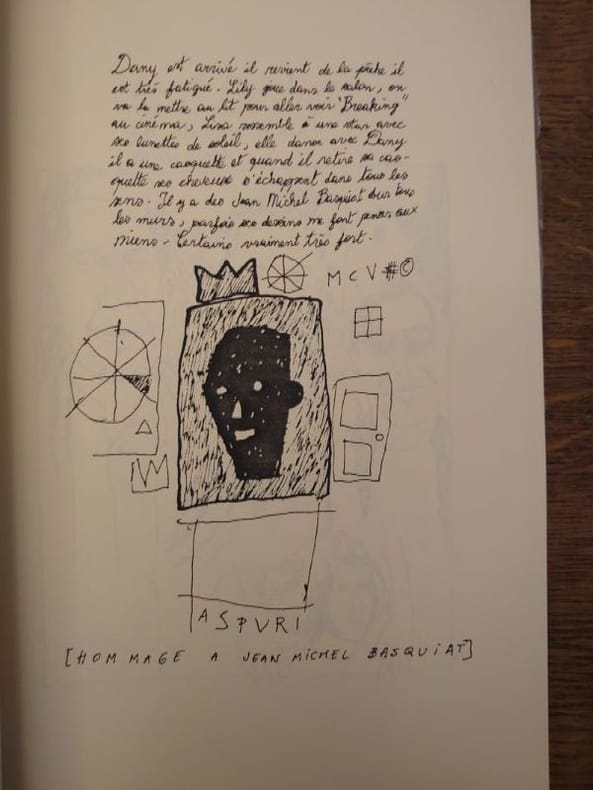 Dany est arrivé il revient de la pêche il
est très fatigué. Lily joue dans le salon, on
va la mettre au lit pour aller voir "Breaking"
au cinéma, Lisa ressemble à une star avec
ses lunettes de soleil, elle danse avec Dany
il a une casquette et quand il retire sa cas-
quette ses cheveux s'échappent dans tous les
sens. Il y a des Jean Michel Basquiat sur tous
les murs, parfois ses dessins me font penser aux
miens - Certains vraiment très fort.
M C V # ©
A S P V R I
[HOMMAGE A JEAN MICHEL BASQUiAT]